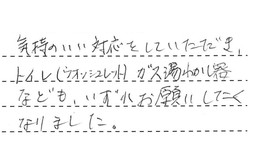 気持のいい対応をしていただき、
トイレ(ウオシュレット)ガス湯わかし器
なども、いずれお願いしたく
なりました。